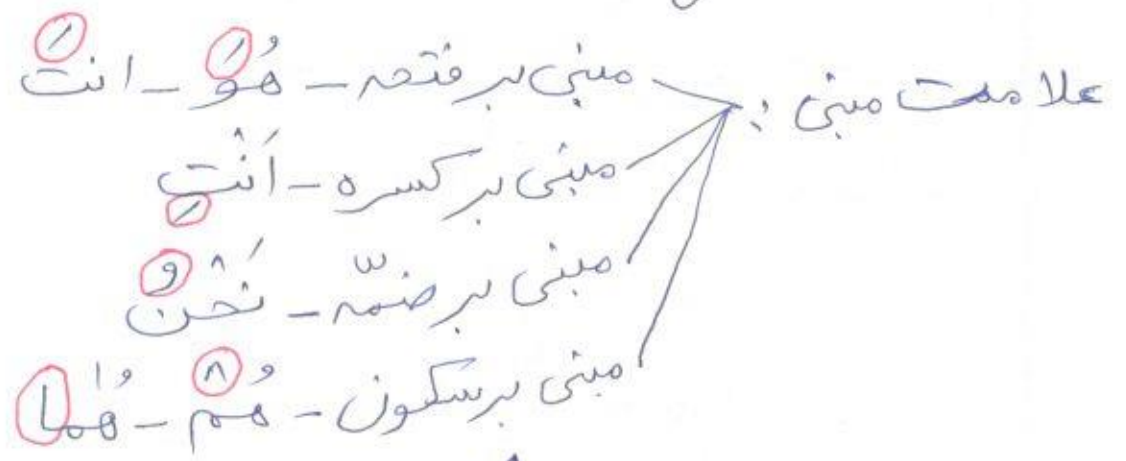 علامت مبنی : مبنی بر فتحه - هُوَ - انتَ
مبنی بر کسره - اَنْتِ
مبنی بر ضمّه - نَحْنُ
مبنی بر سکون - هُمْ - هُمٰا